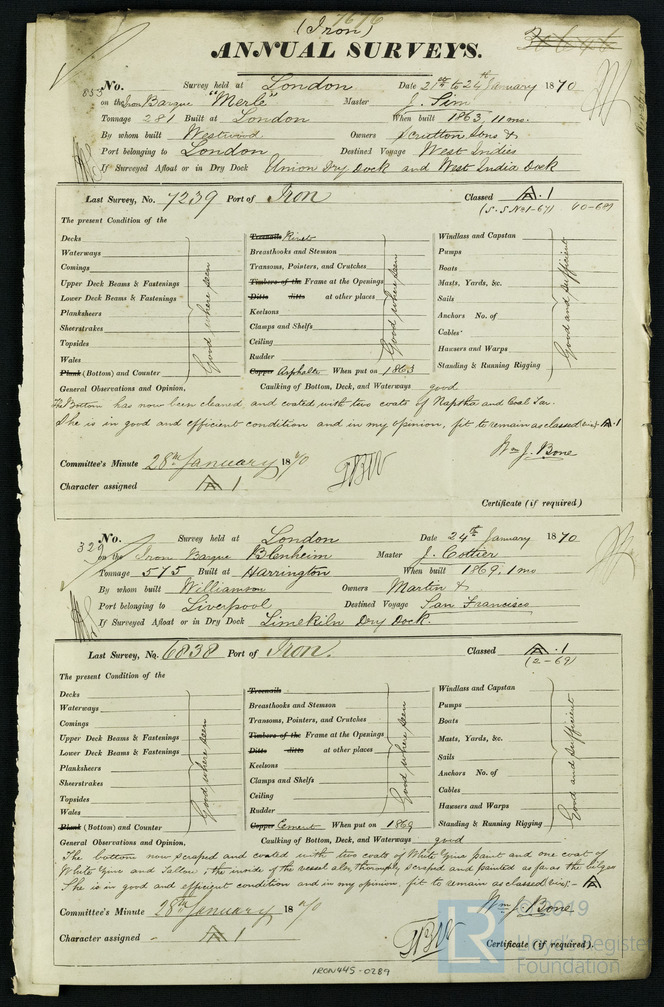 (Iron)
ANNUAL SURVEYS.
No. Survey held at London Date 21st to 24th January 1870
855 on the Iron Barque "Merle" Master J. Sim
Tonnage 281 Built at London When built 1863, 11 mo.
By whom built Westwood Owners Scrutton Sons &
Port belonging to London Destined Voyage West Indies
If Surveyed Afloat or in Dry Dock Union Dry Dock and West India Dock
Last Survey, No. 7239 Port of Iron Classed A.1
(S.S No 1-67) 10-69
The present Condition of the
Decks
Waterways
Comings
Upper Deck Beams & Fastenings
Lower Deck Beams & Fastenings
Planksheers
Sheerstrakes
Topsides
Wales
Plank (Bottom) and Counter
Good where seen
Treenails Rivets
Breasthooks and Stemson
Transoms, Pointers, and Crutches
Timbers of the Frame at the Openings
Ditto ditto at other places
Keelsons
Clamps and Shelfs
Ceiling
Rudder
Copper Asphalte When put on 1863
Good where seen
Windlass and Capstan
Pumps
Boats
Masts, Yards, &c.
Sails
Anchors No. of
Cables
Hawsers and Warps
Standing & Running Rigging
Good and sufficient
General Observations and Opinion, Caulking of Bottom, Deck, and Waterways good
The Bottom has now been cleaned, and coated with two coats of Naptha and Coal Tar.
She is in good and efficient condition and in my opinion, fit to remain as classed viz: A.1
Wm J. Bone
Committee's Minute 28th January 1870
Character assigned A 1
Certificate (if required)
No. Survey held at London Date 24th January 1870
329 on the Iron Barque Blenheim Master J. Cottier
Tonnage 575 Built at Harrington When built 1869, 1 mo
By whom built Williamson Owners Martin &
Port belonging to Liverpool Destined Voyage San Francisco
If Surveyed Afloat or in Dry Dock Limekiln Dry Dock.
Last Survey, No. 6838 Port of Iron. Classed A.1
(2-69)
The present Condition of the
Decks
Waterways
Comings
Upper Deck Beams & Fastenings
Lower Deck Beams & Fastenings
Planksheers
Sheerstrakes
Topsides
Wales
Plank (Bottom) and Counter
Good where seen
Treenails
Breasthooks and Stemson
Transoms, Pointers, and Crutches
Timbers of the Frame at the Openings
Ditto ditto at other places
Keelsons
Clamps and Shelfs
Ceiling
Rudder
Copper Cement When put on 1869
Good where seen
Windlass and Capstan
Pumps
Boats
Masts, Yards, &c.
Sails
Anchors No. of
Cables
Hawsers and Warps
Standing & Running Rigging
Good and sufficient
General Observations and Opinion, Caulking of Bottom, Deck, and Waterways good
The bottom now scraped and coated with two coats of White Zinc paint and one coat of
White Zinc and Tallow; the inside of the vessel also thoroughly scraped and painted as far as the bilges
She is in good and efficient condition and in my opinion, fit to remain as classed viz: - A
Wm J. Bone
Committee's Minute 28th January 1870
Character assigned - A 1
Certificate (if required).
IRON445-0289
© 2019
LR
Lloyd's Register
Foundation